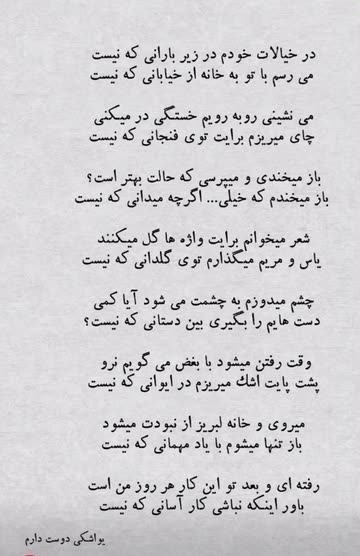 در خیالات خودم در زیر بارانی که نیست
می رسم با تو به خانه از خیابانی که نیست
می نشینی روبه رویم خستگی در میکنی
چای میریزم برایت توی فنجانی که نیست
باز میخندی و میپرسی که حالت بهتر است؟
باز میخندم که خیلی... اگرچه میدانی که نیست
شعر میخوانم برایت واژه ها گل میکنند
یاس و مریم میگذارم توی گلدانی که نیست
چشم میدوزم به چشمت می شود آیا کمی
دست هایم را بگیری بین دستانی که نیست؟
وقت رفتن میشود با بغض می گویم نرو
پشت پایت اشک میریزم در ایوانی که نیست
میروی و خانه لبریز از نبودت میشود
باز تنها میشوم با یاد مهمانی که نیست
رفته ای و بعد تو این کار هر روز من است
باور اینکه نباشی کار آسانی که نیست
یواشکی دوست دارم